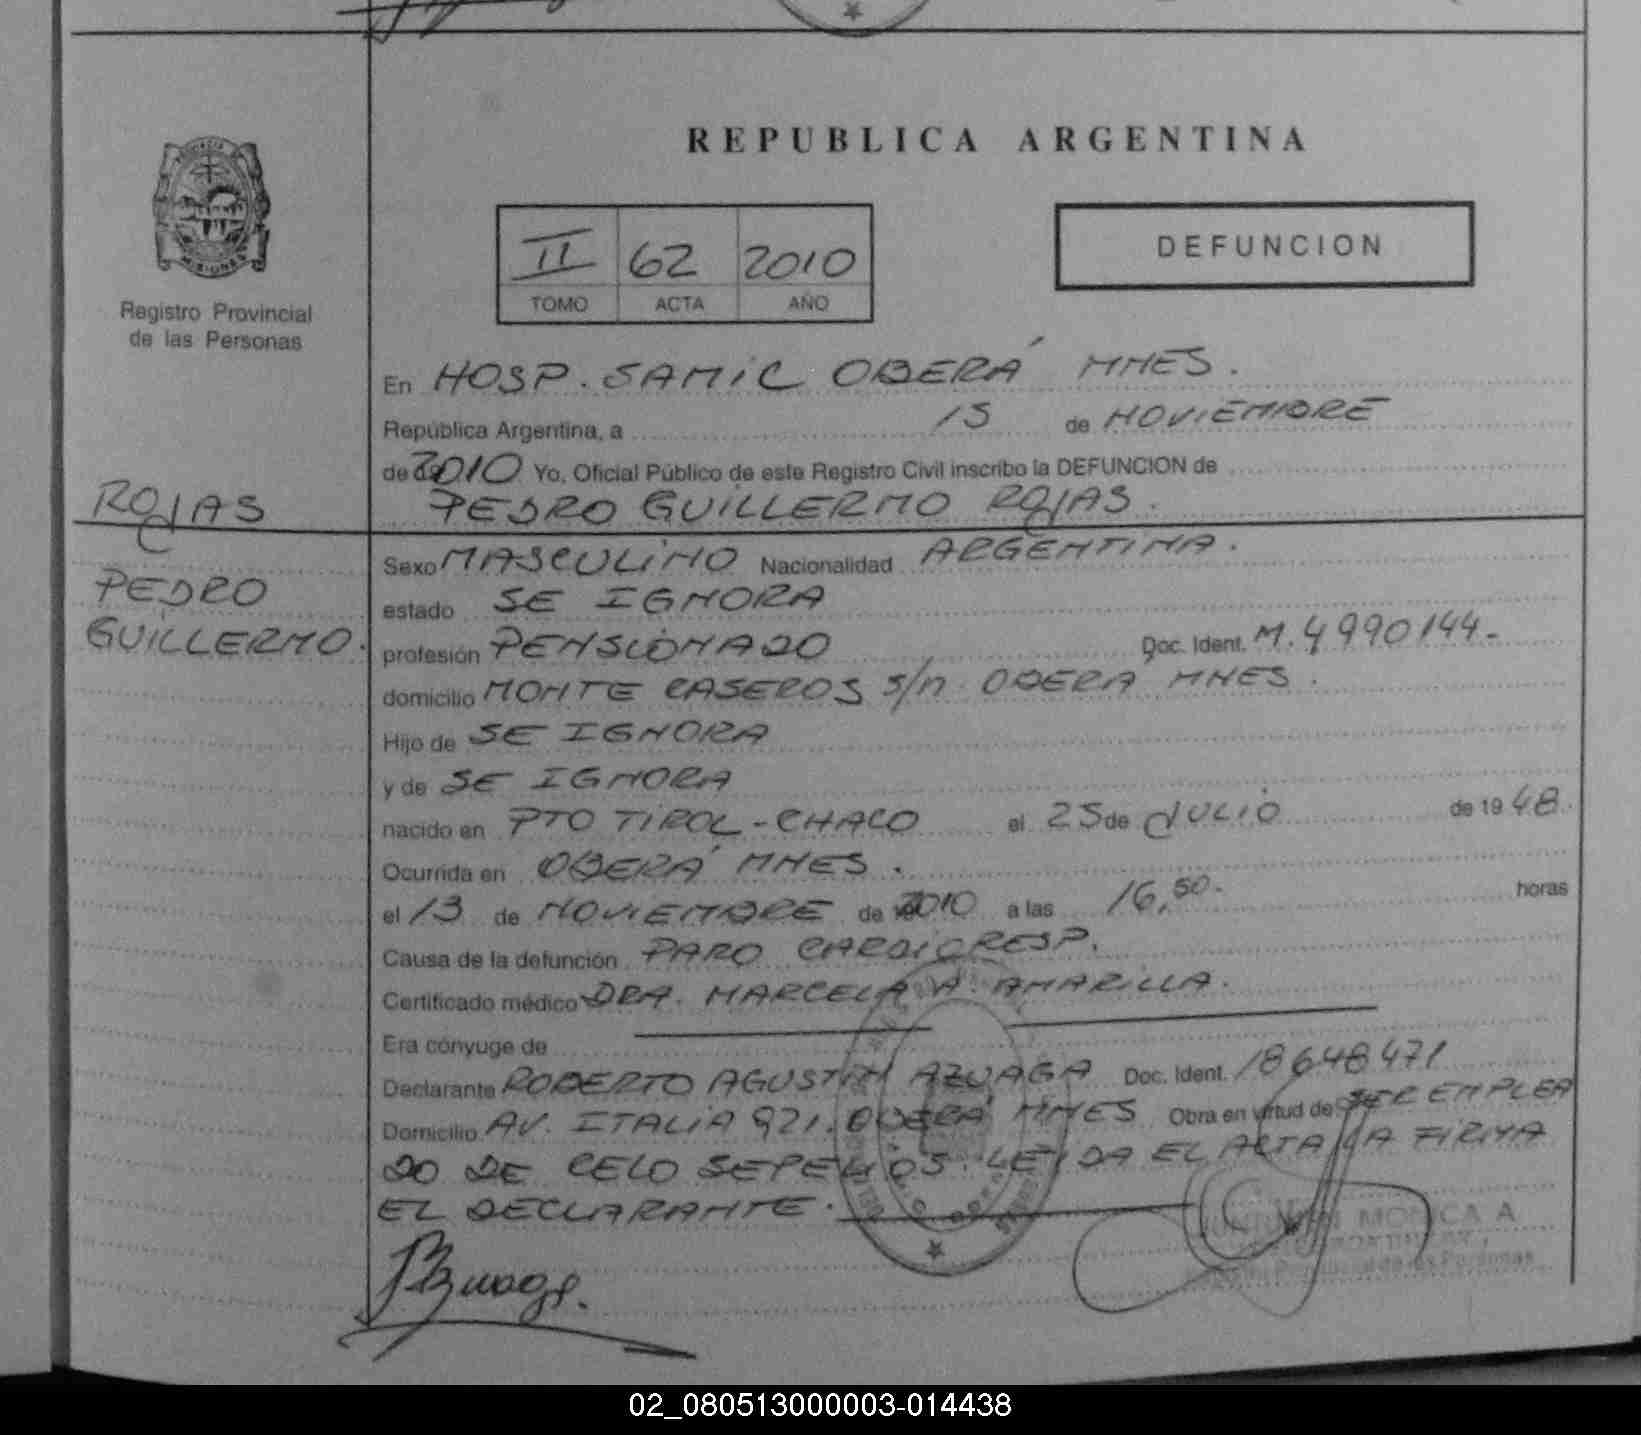 REPUBLICA ARGENTINA
PROVINCIA
MISIONES
Registro Provincial
de las Personas
II 62 2010
TOMO ACTA AÑO
DEFUNCION
En HOSP. SAMIC OBERÁ MNES.
República Argentina, a 15 de NOVIEMBRE
de 2010 Yo, Oficial Público de este Registro Civil inscribo la DEFUNCION de
PEDRO GUILLERMO ROJAS.
ROJAS
PEDRO
GUILLERMO.
Sexo MASCULINO Nacionalidad ARGENTINA.
estado SE IGNORA
profesión PENSIONADO Doc. Ident. M. 4990144-
domicilio MONTE CASEROS s/n OBERA MNES.
Hijo de SE IGNORA
y de SE IGNORA
nacido en PTO TIROL - CHACO el 25 de JULIO de 1948.
Ocurrida en OBERÁ MNES.
el 13 de NOVIEMBRE de 2010 a las 16,50. horas
Causa de la defunción PARO CARDIORESP.
Certificado médico DRA. MARCELA A. AMARILLA.
Era cónyuge de
Declarante ROBERTO AGUSTIN AZUAGA Doc. Ident. 18648471
Domicilio AV. ITALIA 921. OBERÁ MNES Obra en virtud de SER EMPLEA
DO DE CELO SEPELIOS. LEIDA EL ACTA LA FIRMA
EL DECLARANTE.
MONICA A
02_080513000003-014438